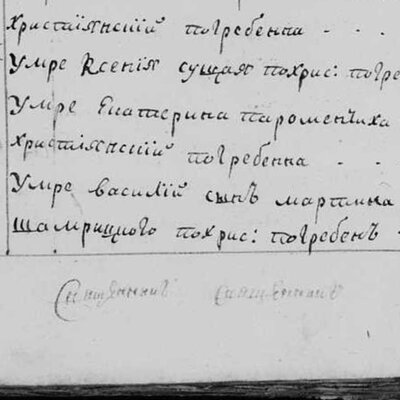 христіянскій погребенна
Умре Ксенія сущая похрис: погре
Умре Екатерина Пароменчиха
христіянскій погребенна
Умре василій сынъ мартина
шамрицкого похрис: погребенъ
Священникъ Священникъ